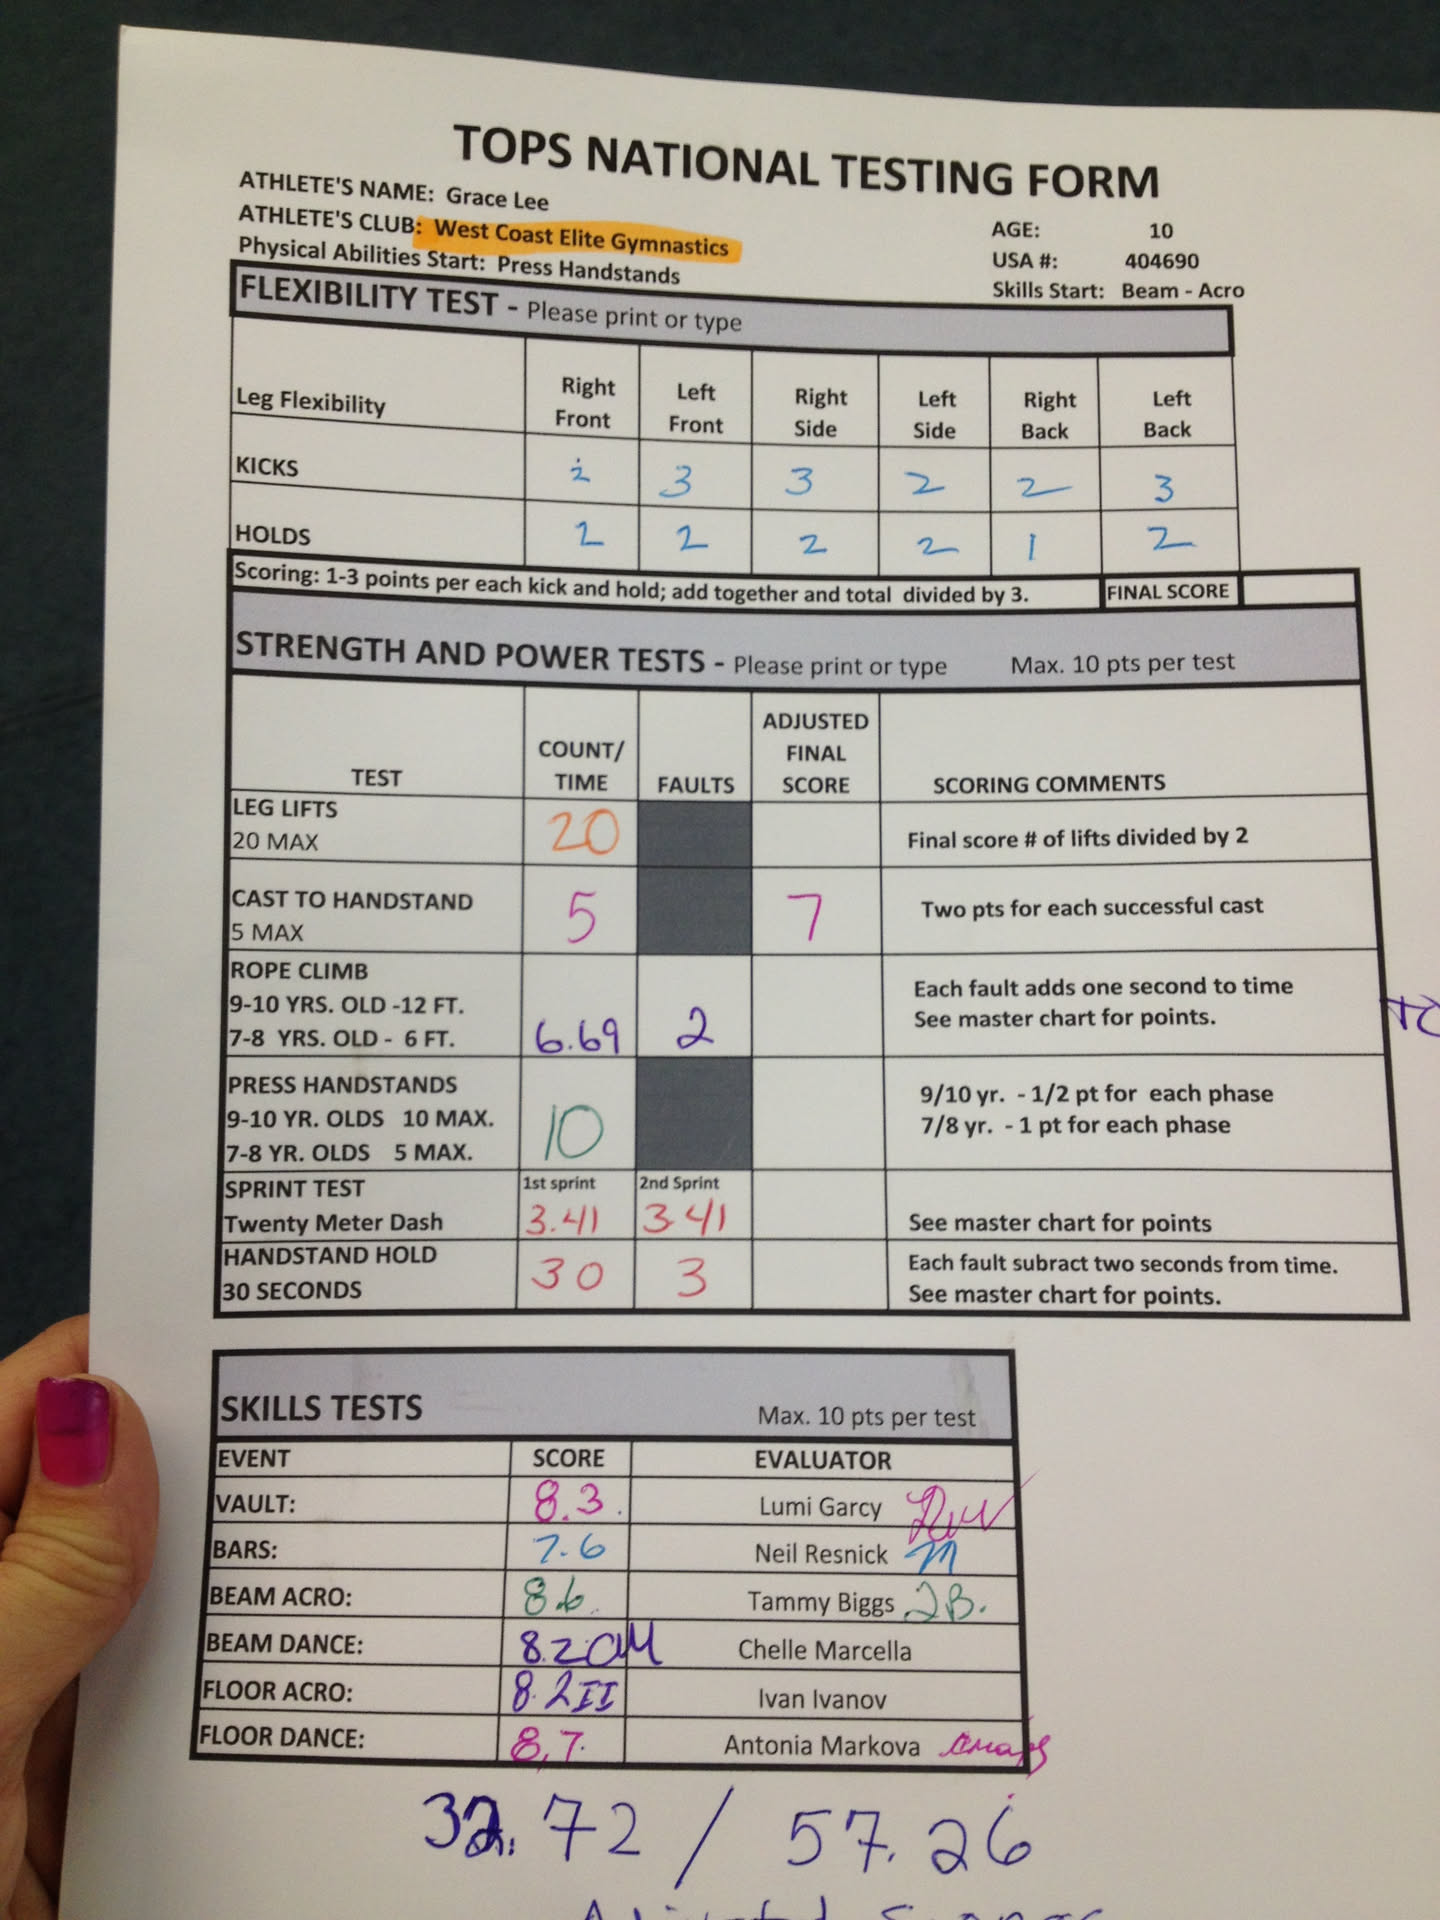 TOPS NATIONAL TESTING FORM
ATHLETE'S NAME: Grace Lee
ATHLETE'S CLUB: West Coast Elite Gymnastics
Physical Abilities Start: Press Handstands
AGE: 10
USA #: 404690
Skills Start: Beam - Acro
FLEXIBILITY TEST - Please print or type
Leg Flexibility Right Front Left Front Right Side Left Side Right Back Left Back
KICKS 2 3 3 2 2 3
HOLDS 2 2 2 2 1 2
Scoring: 1-3 points per each kick and hold; add together and total divided by 3. FINAL SCORE
STRENGTH AND POWER TESTS - Please print or type Max. 10 pts per test
TEST COUNT/ TIME FAULTS ADJUSTED FINAL SCORE SCORING COMMENTS
LEG LIFTS
20 MAX 20 Final score # of lifts divided by 2
CAST TO HANDSTAND
5 MAX 5 7 Two pts for each successful cast
ROPE CLIMB
9-10 YRS. OLD -12 FT. Each fault adds one second to time
7-8 YRS. OLD - 6 FT. 6.69 2 See master chart for points.
PRESS HANDSTANDS
9-10 YR. OLDS 10 MAX. 10 9/10 yr. - 1/2 pt for each phase
7-8 YR. OLDS 5 MAX. 7/8 yr. - 1 pt for each phase
SPRINT TEST 1st sprint 2nd Sprint
Twenty Meter Dash 3.41 3.41 See master chart for points
HANDSTAND HOLD Each fault subract two seconds from time.
30 SECONDS 30 3 See master chart for points.
SKILLS TESTS Max. 10 pts per test
EVENT SCORE EVALUATOR
VAULT: 8.3 Lumi Garcy
BARS: 7.6 Neil Resnick
BEAM ACRO: 8.6 Tammy Biggs JB.
BEAM DANCE: 8.2 CM Chelle Marcella
FLOOR ACRO: 8.2 II Ivan Ivanov
FLOOR DANCE: 8.7 Antonia Markova
32.72 / 57.26